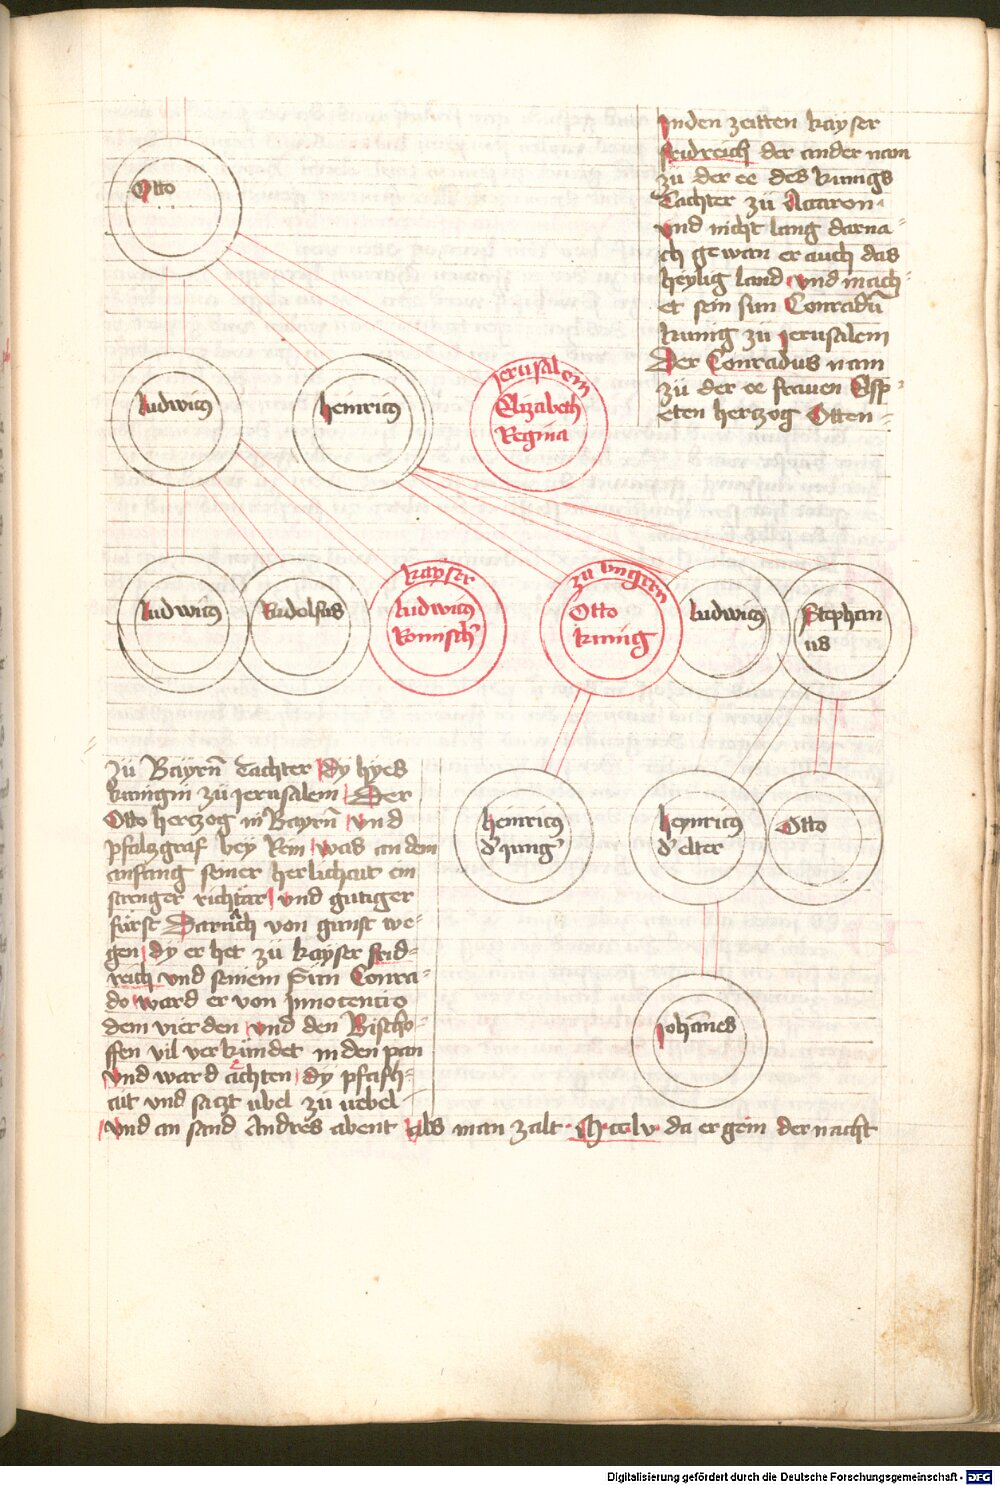 Inden zeitten kayser
fridreich der ander nam
zu der ee des kunigs
tachter zü Aaaron
vnd nicht lang darna=
ch gewan er auch das
heylig land vnd mach=
et sein sun Conradū
kunig zü jerusalem
Der Conradus nam
zü der ee frauen Elsp=
eten herczog Otten=
Otto
ludwicꝰ
heinricꝰ
jerusalem
Elizabeth
Regina
ludwicꝰ
Rudolfus
kayser
ludwicꝰ
Romisch
zu vngern
Otto
kunig
ludwicꝰ
Stephan
us
heinricꝰ
d' jung'
heynricꝰ
d' elter
Otto
johānes
zü Bayrn̄ tachter dy hyes
kunigin zü jerusalem Der
Otto herczog in Bayrn̄ vnd
pfalczgraf bey Rein was an dem
anfang seiner herlichait ein
strenger richtär vnd gutiger
fürst Darnach von gunst we=
gen dy er het zü kayser frid=
reich vnd seinem Sun Conra=
do ward er von jnnotentio
dem vierden vnd den Bischo=
ffen vil verkündet in den pan
vnd ward ächten dy pfafh=
ait vnd saczt vbel zü uebel
vnd an sand Andres abent als man zalt M cclv da er gein der nacht
Digitalisierung gefördert durch die Deutsche Forschungsgemeinschaft - DFG